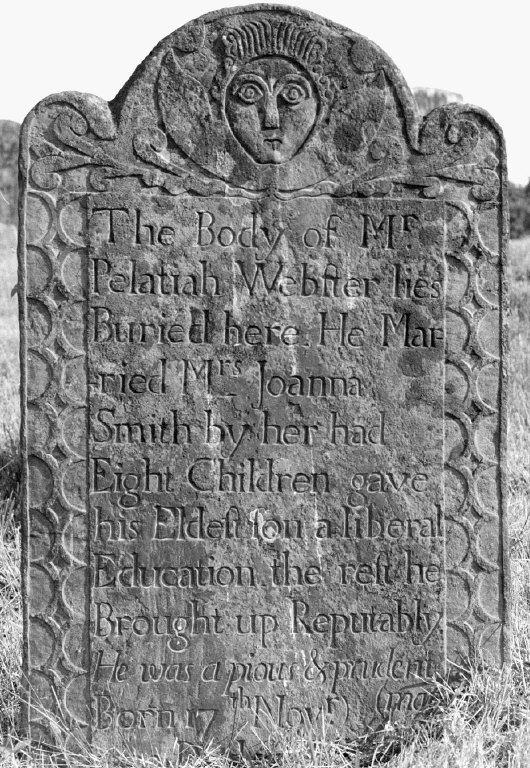 The Body of Mr.
Pelatiah Webſter lies
Buried here. He Mar-
-ried Mrs Joanna
Smith by her had
Eight Children gave
his Eldeſt ſon a liberal
Education the reſt he
Brought up Reputably
He was a pious & prudent
Born 17th Novr) (ma